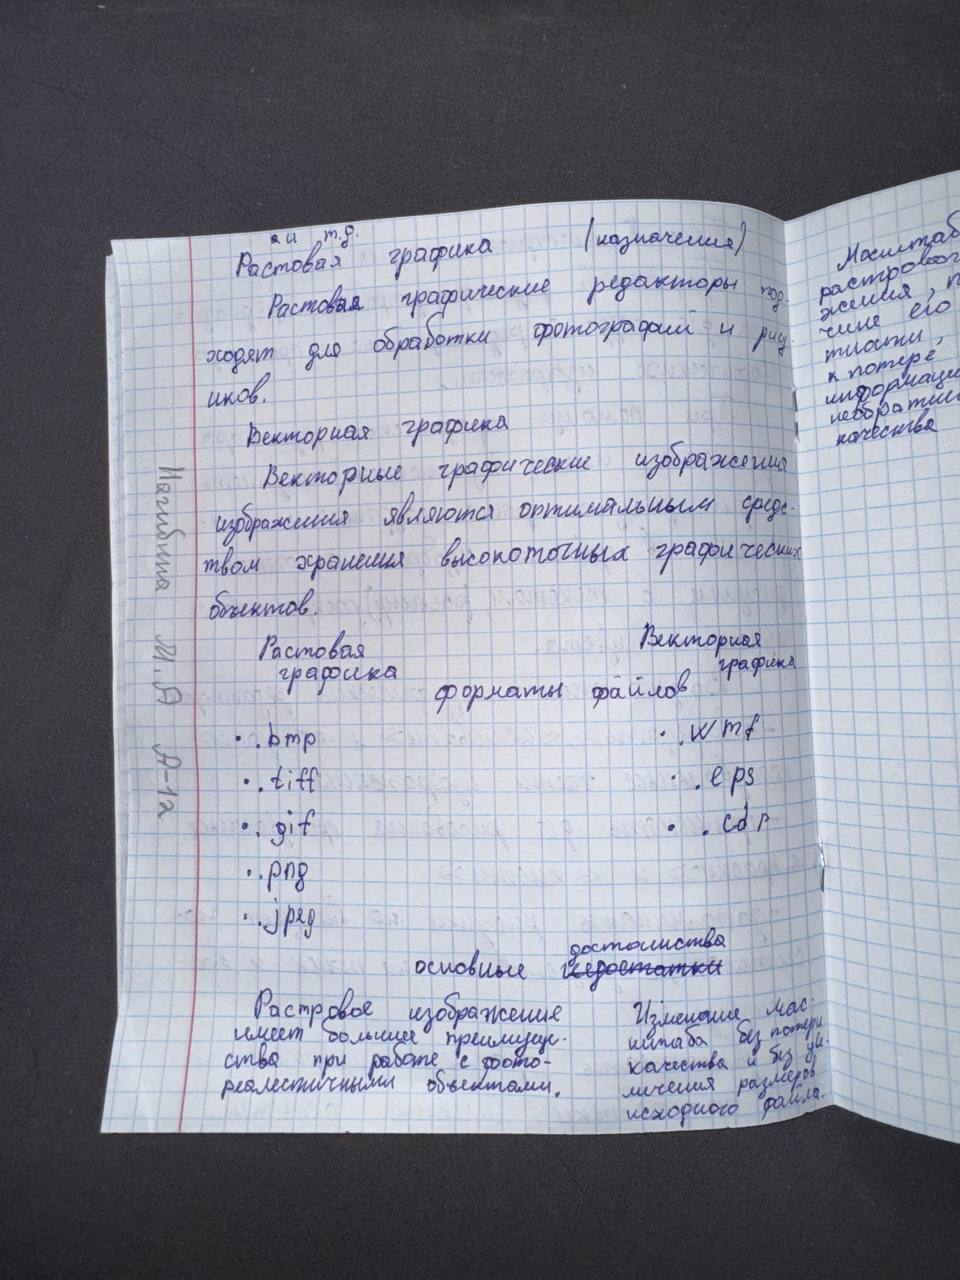 и т.д.
Растовая графика (назначения)
Растовая графические редакторы под-
ходят для обработки фотографий и рису
нков.
Векторная графика
Векторные графические изображения
изображения являются оптимальным средс-
твом хранения высокоточных графических
объектов.
Растовая
графика
Векторная
графика
форматы файлов
• .bmp
• .tiff
• .gif
• .png
• .jpeg
• .wmf
• .eps
• .cdr
достоинства
основные недостатки
Растровое изображение
имеет большее преимущес-
ства при работе с фото-
реалестичными объектами.
Изменение мас-
штаба без потери
качества и без уве-
личения размеров
исходного файла.
Нагибина М.А А-12
Масштаб
растрового
жения, п
чине его
тности,
к потере
информаци
необратим
качества